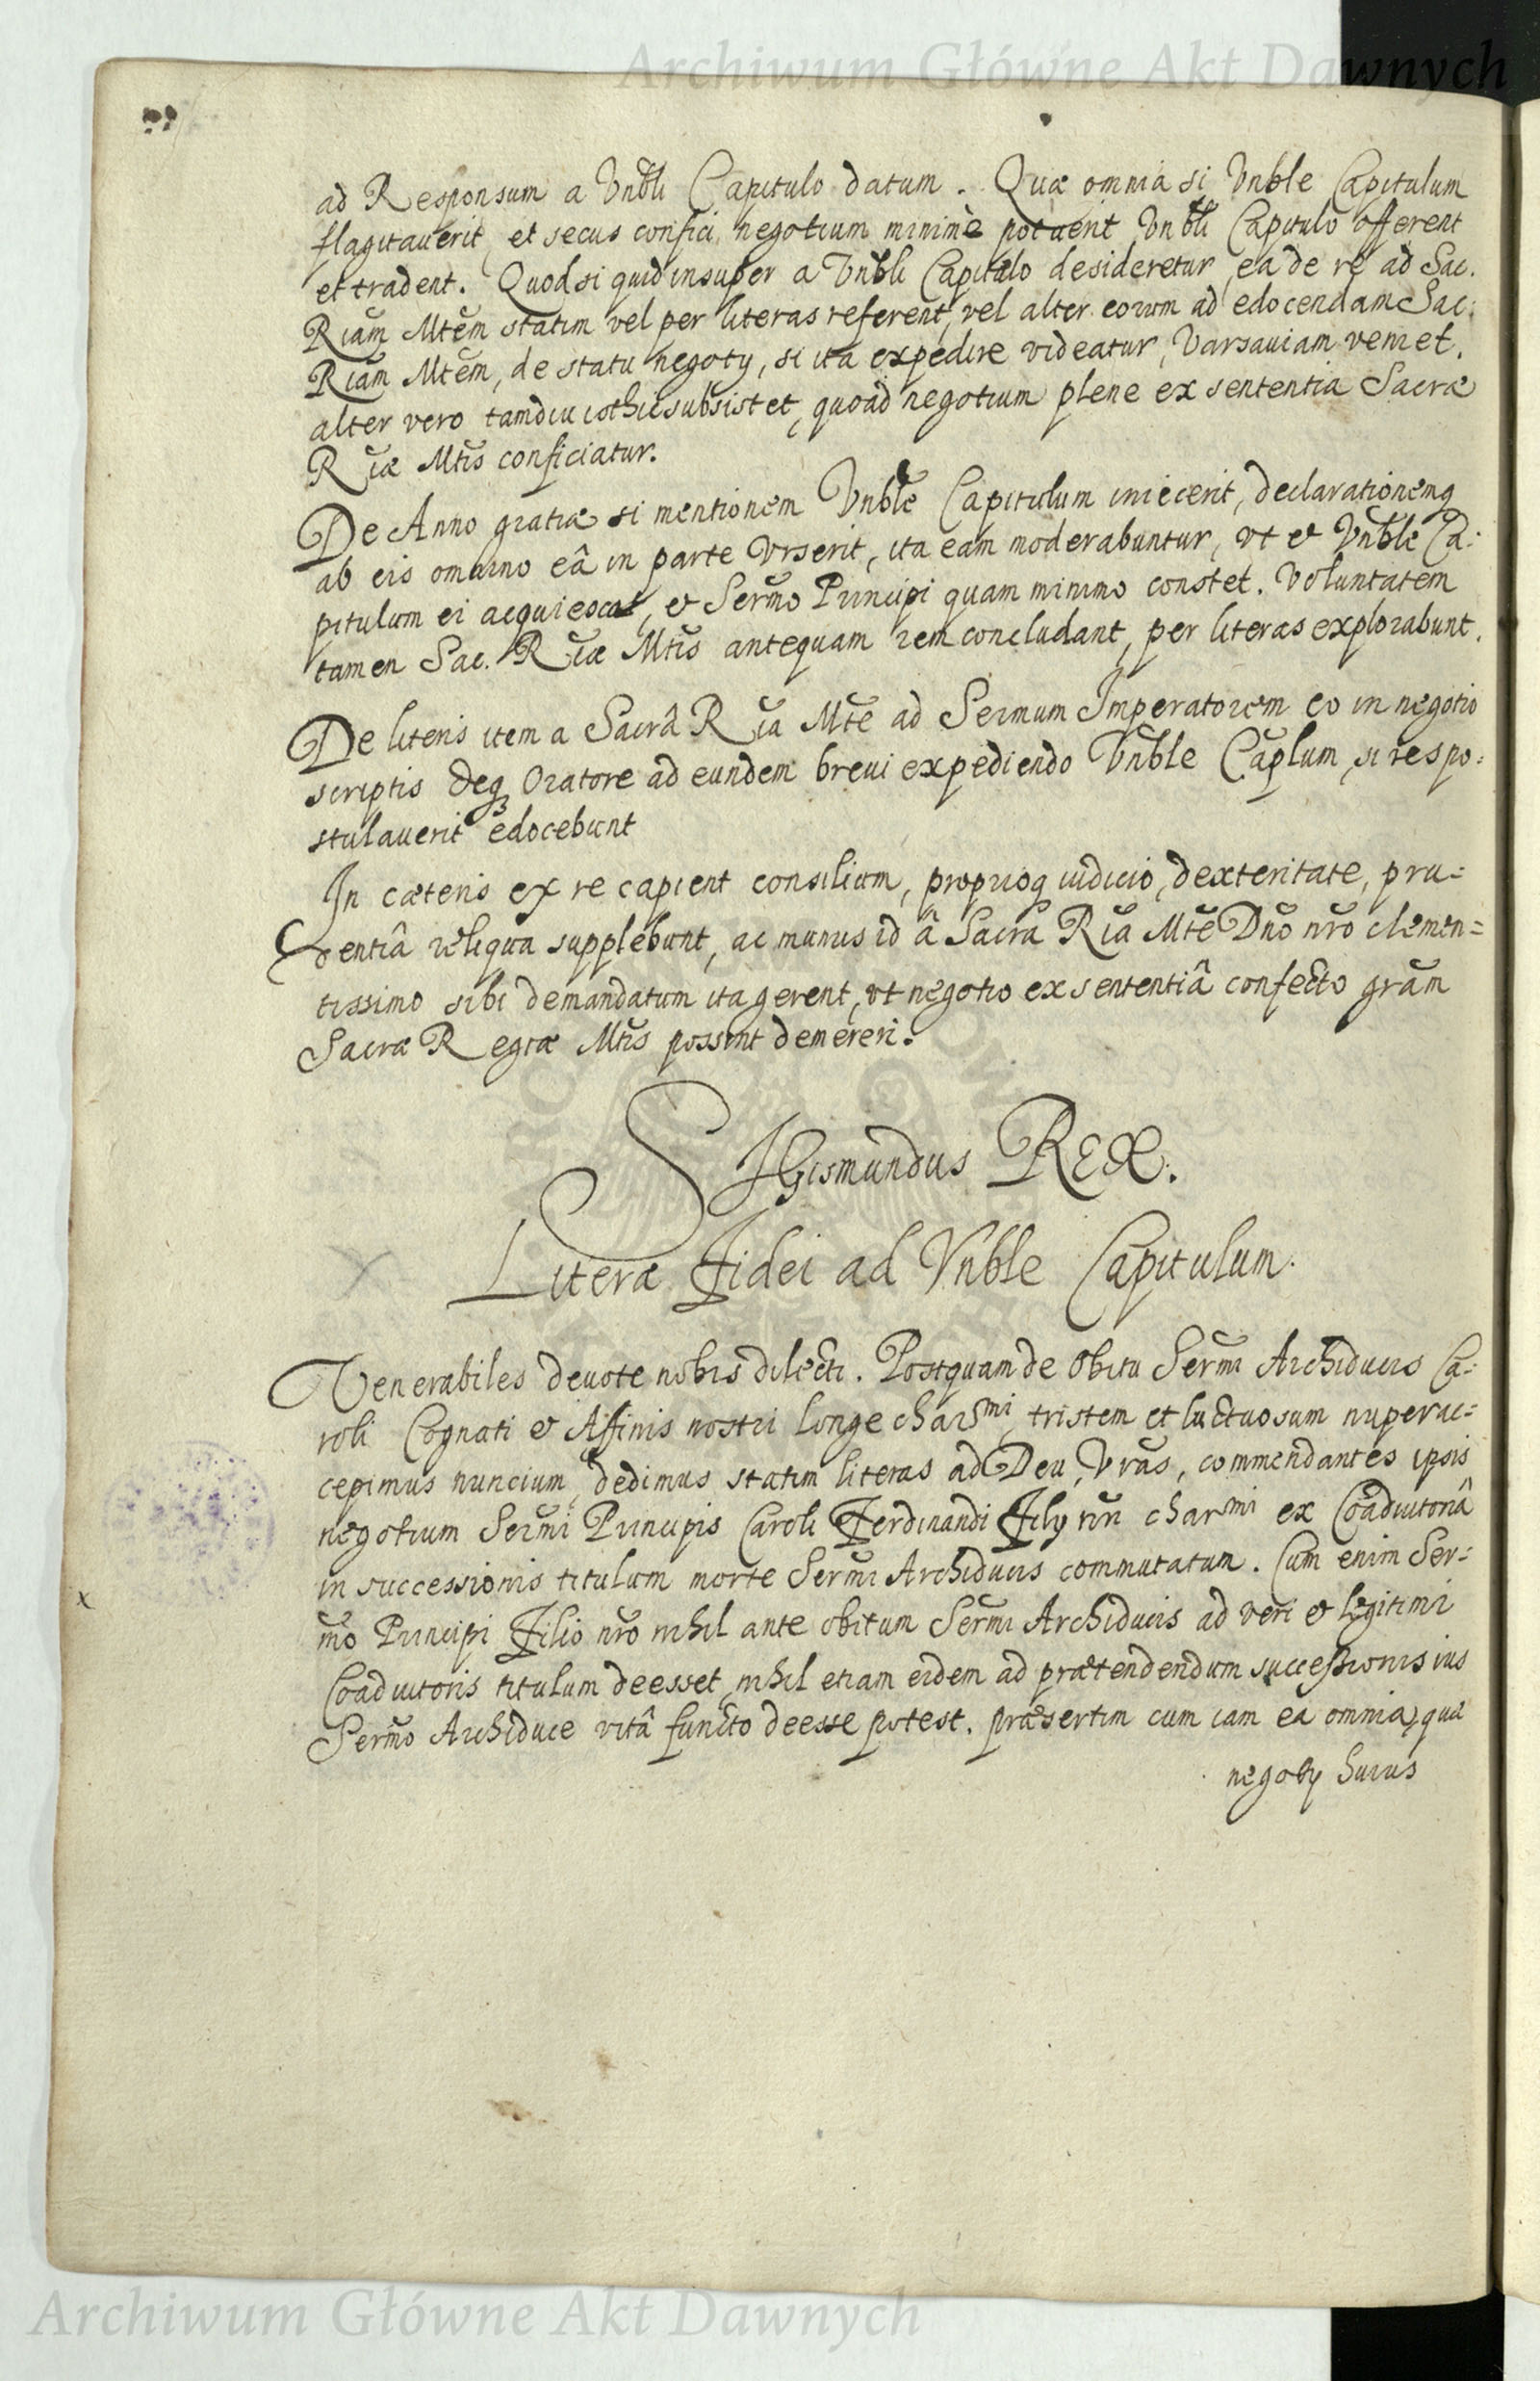 Archiwum Główne Akt Dawnych
ad Responsum a Vnbli Capitulo datum. Quæ omnia si Vnble Capitulum
flagitauerit, et secus confici negotium minimè potuerit Vnbli Capitulo offerent
et tradent. Quod si quid insuper a Vnbli Capitulo desideretur, ea de re ad Sac.
Riam Mtem statim vel per literas referent, vel alter eorum ad edocendam Sac.
Riam Mtem, de statu negoty, si ita expedire videatur, Varsauiam veniet.
alter vero tamdiu isthic subsistet, quoad negotium plene ex sententia Sacræ
Riæ Mtis conficiatur.
De Anno gratiæ si mentionem Vnble Capitulum iniecerit, declarationemq
ab eis omnino eâ in parte Vrserit, ita eam moderabuntur, vt et Vnble Ca-
pitulum ei acquiescat, et Sermo Principi quam minimo constet. Voluntatem
tamen Sac. Riæ Mtis antequam rem concludant, per literas explorabunt.
De literis item a Sacrâ Ria Mte ad Sermum Imperatorem eo in negotio
scriptis deq Oratore ad eundem breui expediendo Vnble Caplum, si respo-
stulauerit edocebunt
In cæteris ex re capient consilium, proprioq iudicio, dexteritate, pru-
dentiâ reliqua supplebunt, ac munus id â Sacra Ria Mte Dno nro clemen-
tissimo sibi demandatum ita gerent, vt negotio ex sententiâ confecto gram
Sacræ Regiæ Mtis possint demereri.
SIGismundus REX.
Literæ Fidei ad Vnble Capitulum.
Venerabiles deuote nobis dilecti. Postquam de obitu Sermi Archiducis Ca-
roli Cognati et Affinis nostri longe charsmi, tristem et luctuosum nuper ac-
cepimus nuncium, dedimus statim literas ad Deu, Vras, commendantes ipsis
negotium Sermi Principis Caroli Ferdinandi Fily nri charmi ex Coadiutoriâ
in successionis titulum morte Sermi Archiducis commutatum. Cum enim Ser-
mo Principi Filio nro nihil ante obitum Sermi Archiducis ad veri et legitimi
Coadiutoris titulum deesset, nihil etiam eidem ad prætendendum successionis ius
Sermo Archiduce vitâ functo deesse potest. præsertim cum iam ea omnia, quæ
negoty huius
Archiwum Główne Akt Dawnych